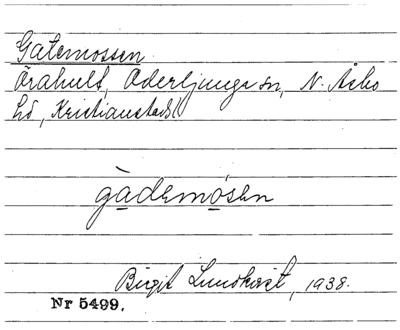 Gatemossen
Örahult, Oderljunga sn, N. Åsbo
hd, Kristianstads l
gàdemósen
Birgit Lundkvist, 1938.
Nr 5499.